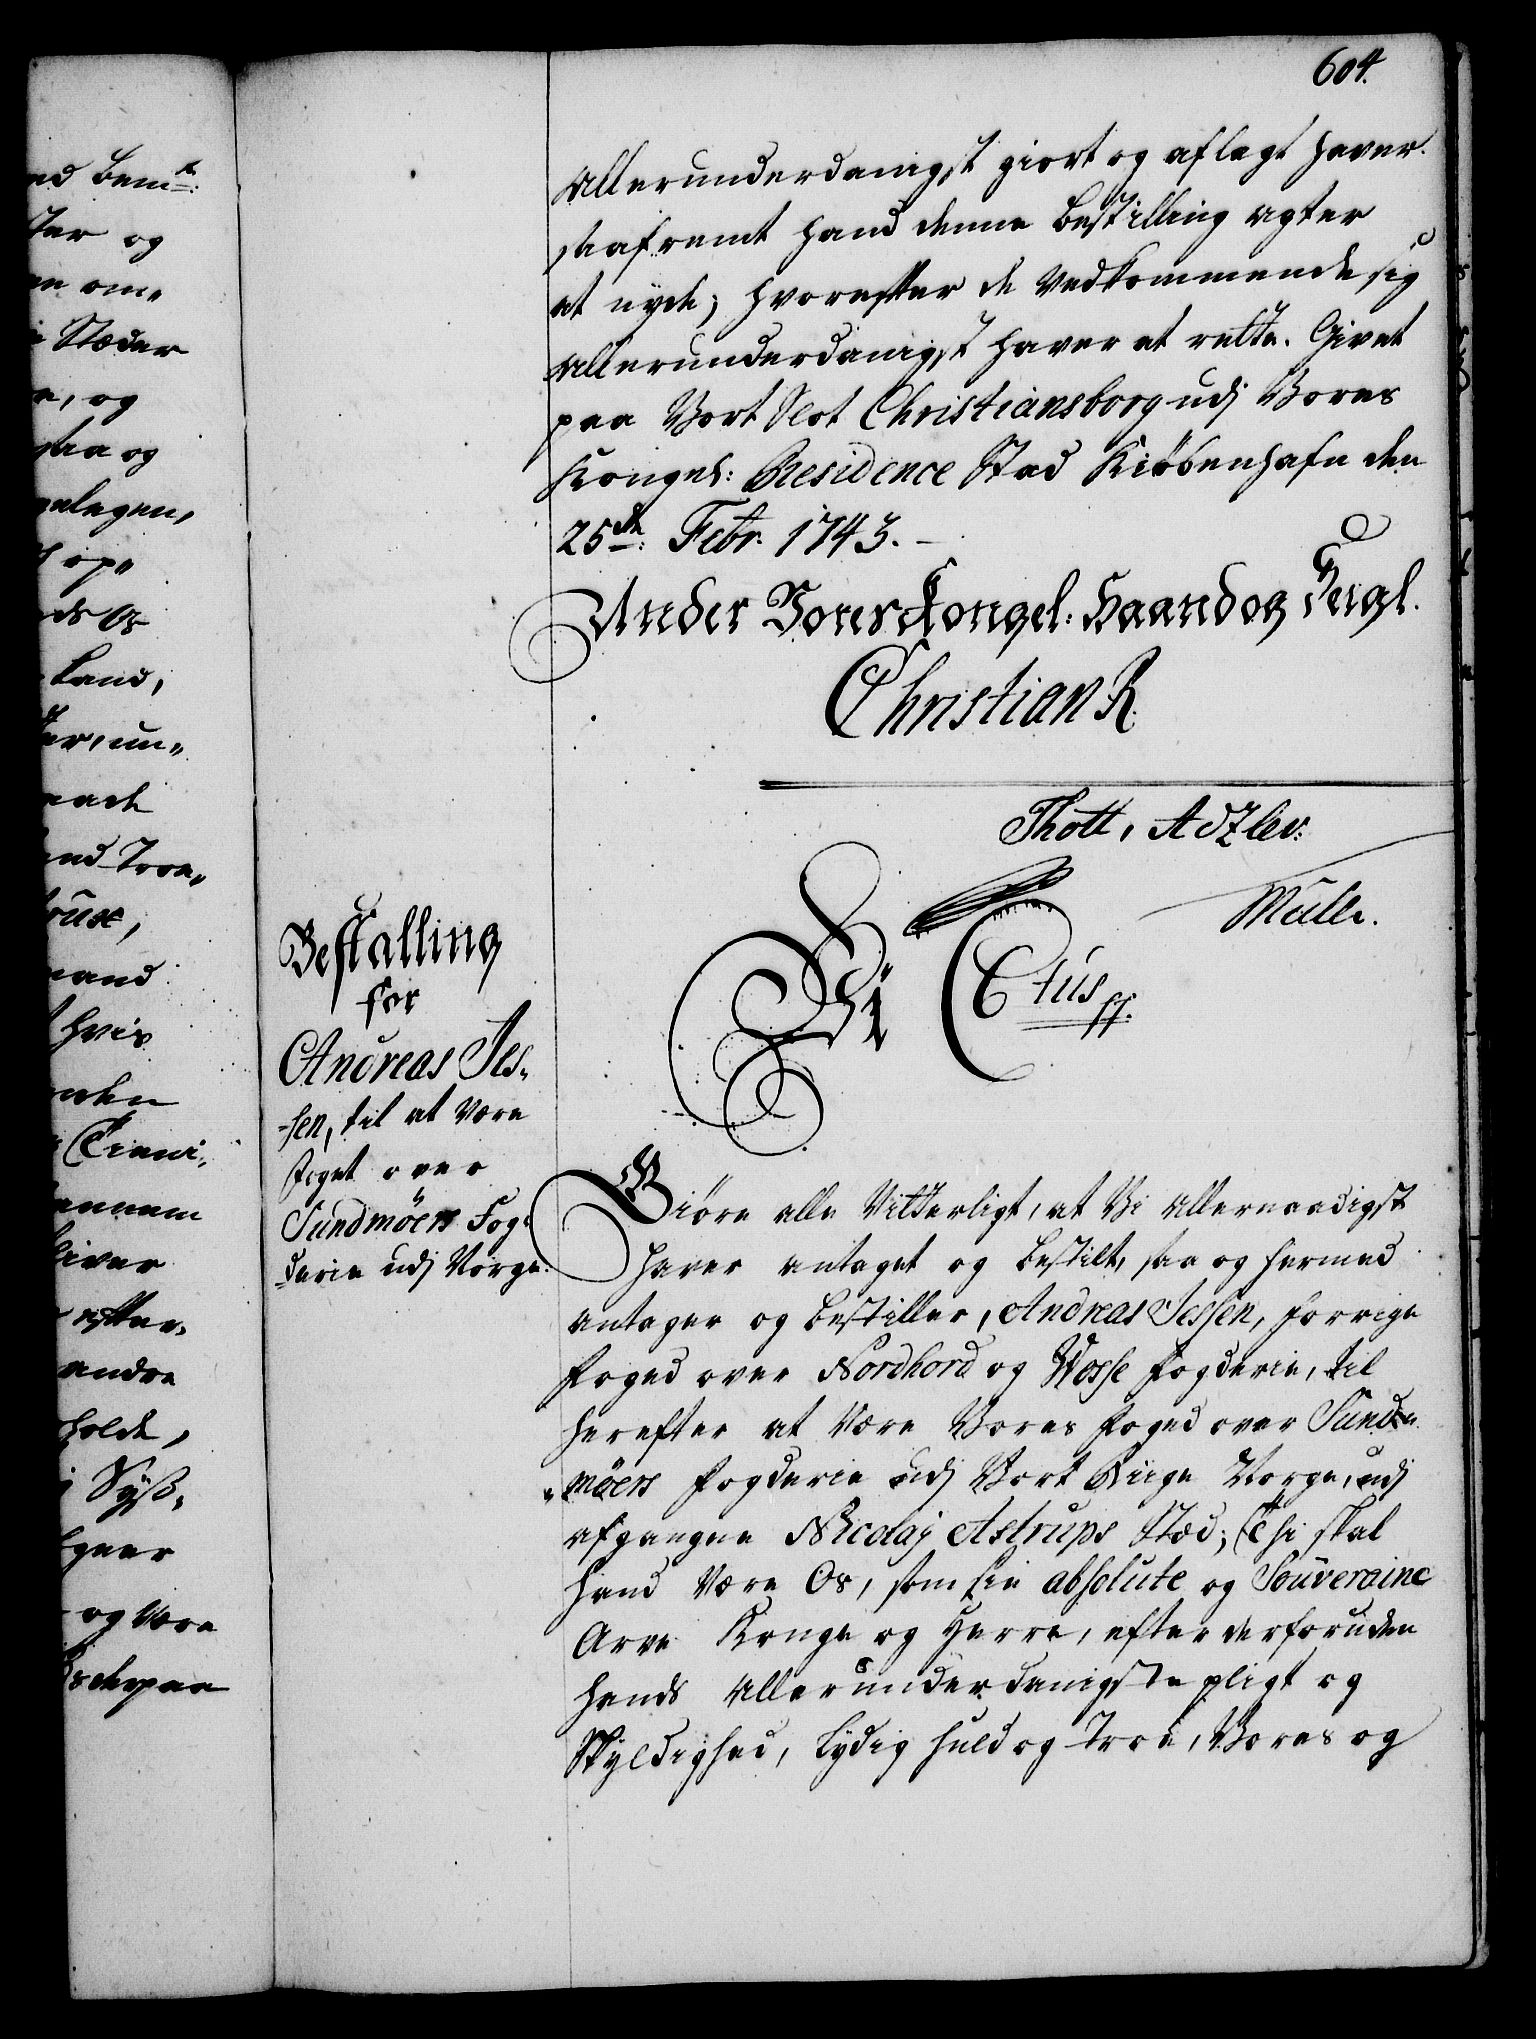 604.
Allerunderdanigst giort og aflagt haver.
saafremt hand denne Bestilling agter
at nyde; hvorefter de Vedkommende sig
Allerunderdanigst haver at rette. Givet
paa Vort Slot Christiansborg udj Vores
Kongel: Residence Stad Kiöbenhafn den
25de: Febr. 1743.-
Under Vores Kongel. Haand og Seigl.
Christian R.
Thott, Adzlev:
Müller.
Vi Ctus ff.
Bestalling
for
Andreas Jes-
-sen, til at være
foget over
Sundmöers Fog-
derie udj Norge.
Giöre alle Vitterligt, at Vi Allernaadigst
haver antaget og bestilt, saa og hermed
antager og bestiller, Andreas Jessen, forrige
foged over Nordhord og Wosse fogderie, til
herefter at være Vores foged over Sund-
-möers fogderie udj Vort Riige Norge, udj
afgangne Nicolaj Astrups Stæd; Thi skal
hand være Os, som sin absolute og Souveraine
Arve Konge og Herre, efter derforuden
hands Allerunderdanigste pligt og
Skyldighed, lydig huld og Troe, Vores og
nd bemte:
ter og
om-
Stæder
, og
saa og
Land,
mand
hvis
andre
holde,
Syss-
og være